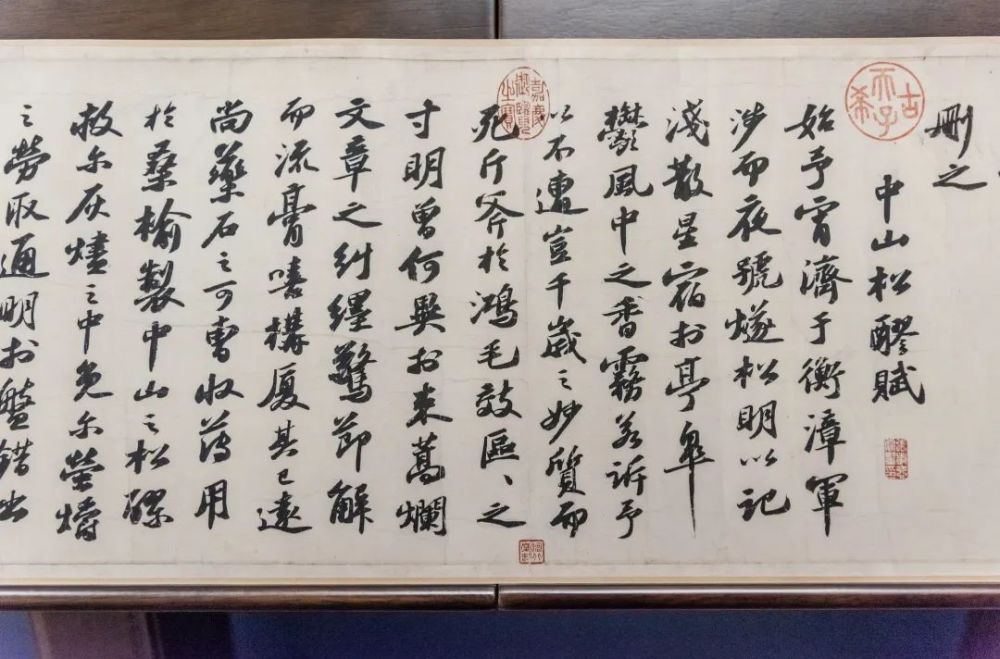 刪之
中山松醪賦
始予宵濟于衡漳軍
涉而夜號燧松明以記
淺散星宿於亭皋
鬱風中之香霧若訴予
以不遭豈千歲之妙質而
死斤斧於鴻毛效區、之
寸明曾何異於束蒿爛
文章之糾纆驚節解
而流膏嘻構廈其已遠
尚藥石之可曹收薄用
於桑榆製中山之松醪
救尔灰燼之中免尔螢爝
之勞取通明於盤錯出
古希天子
嘉慶御覽之寶